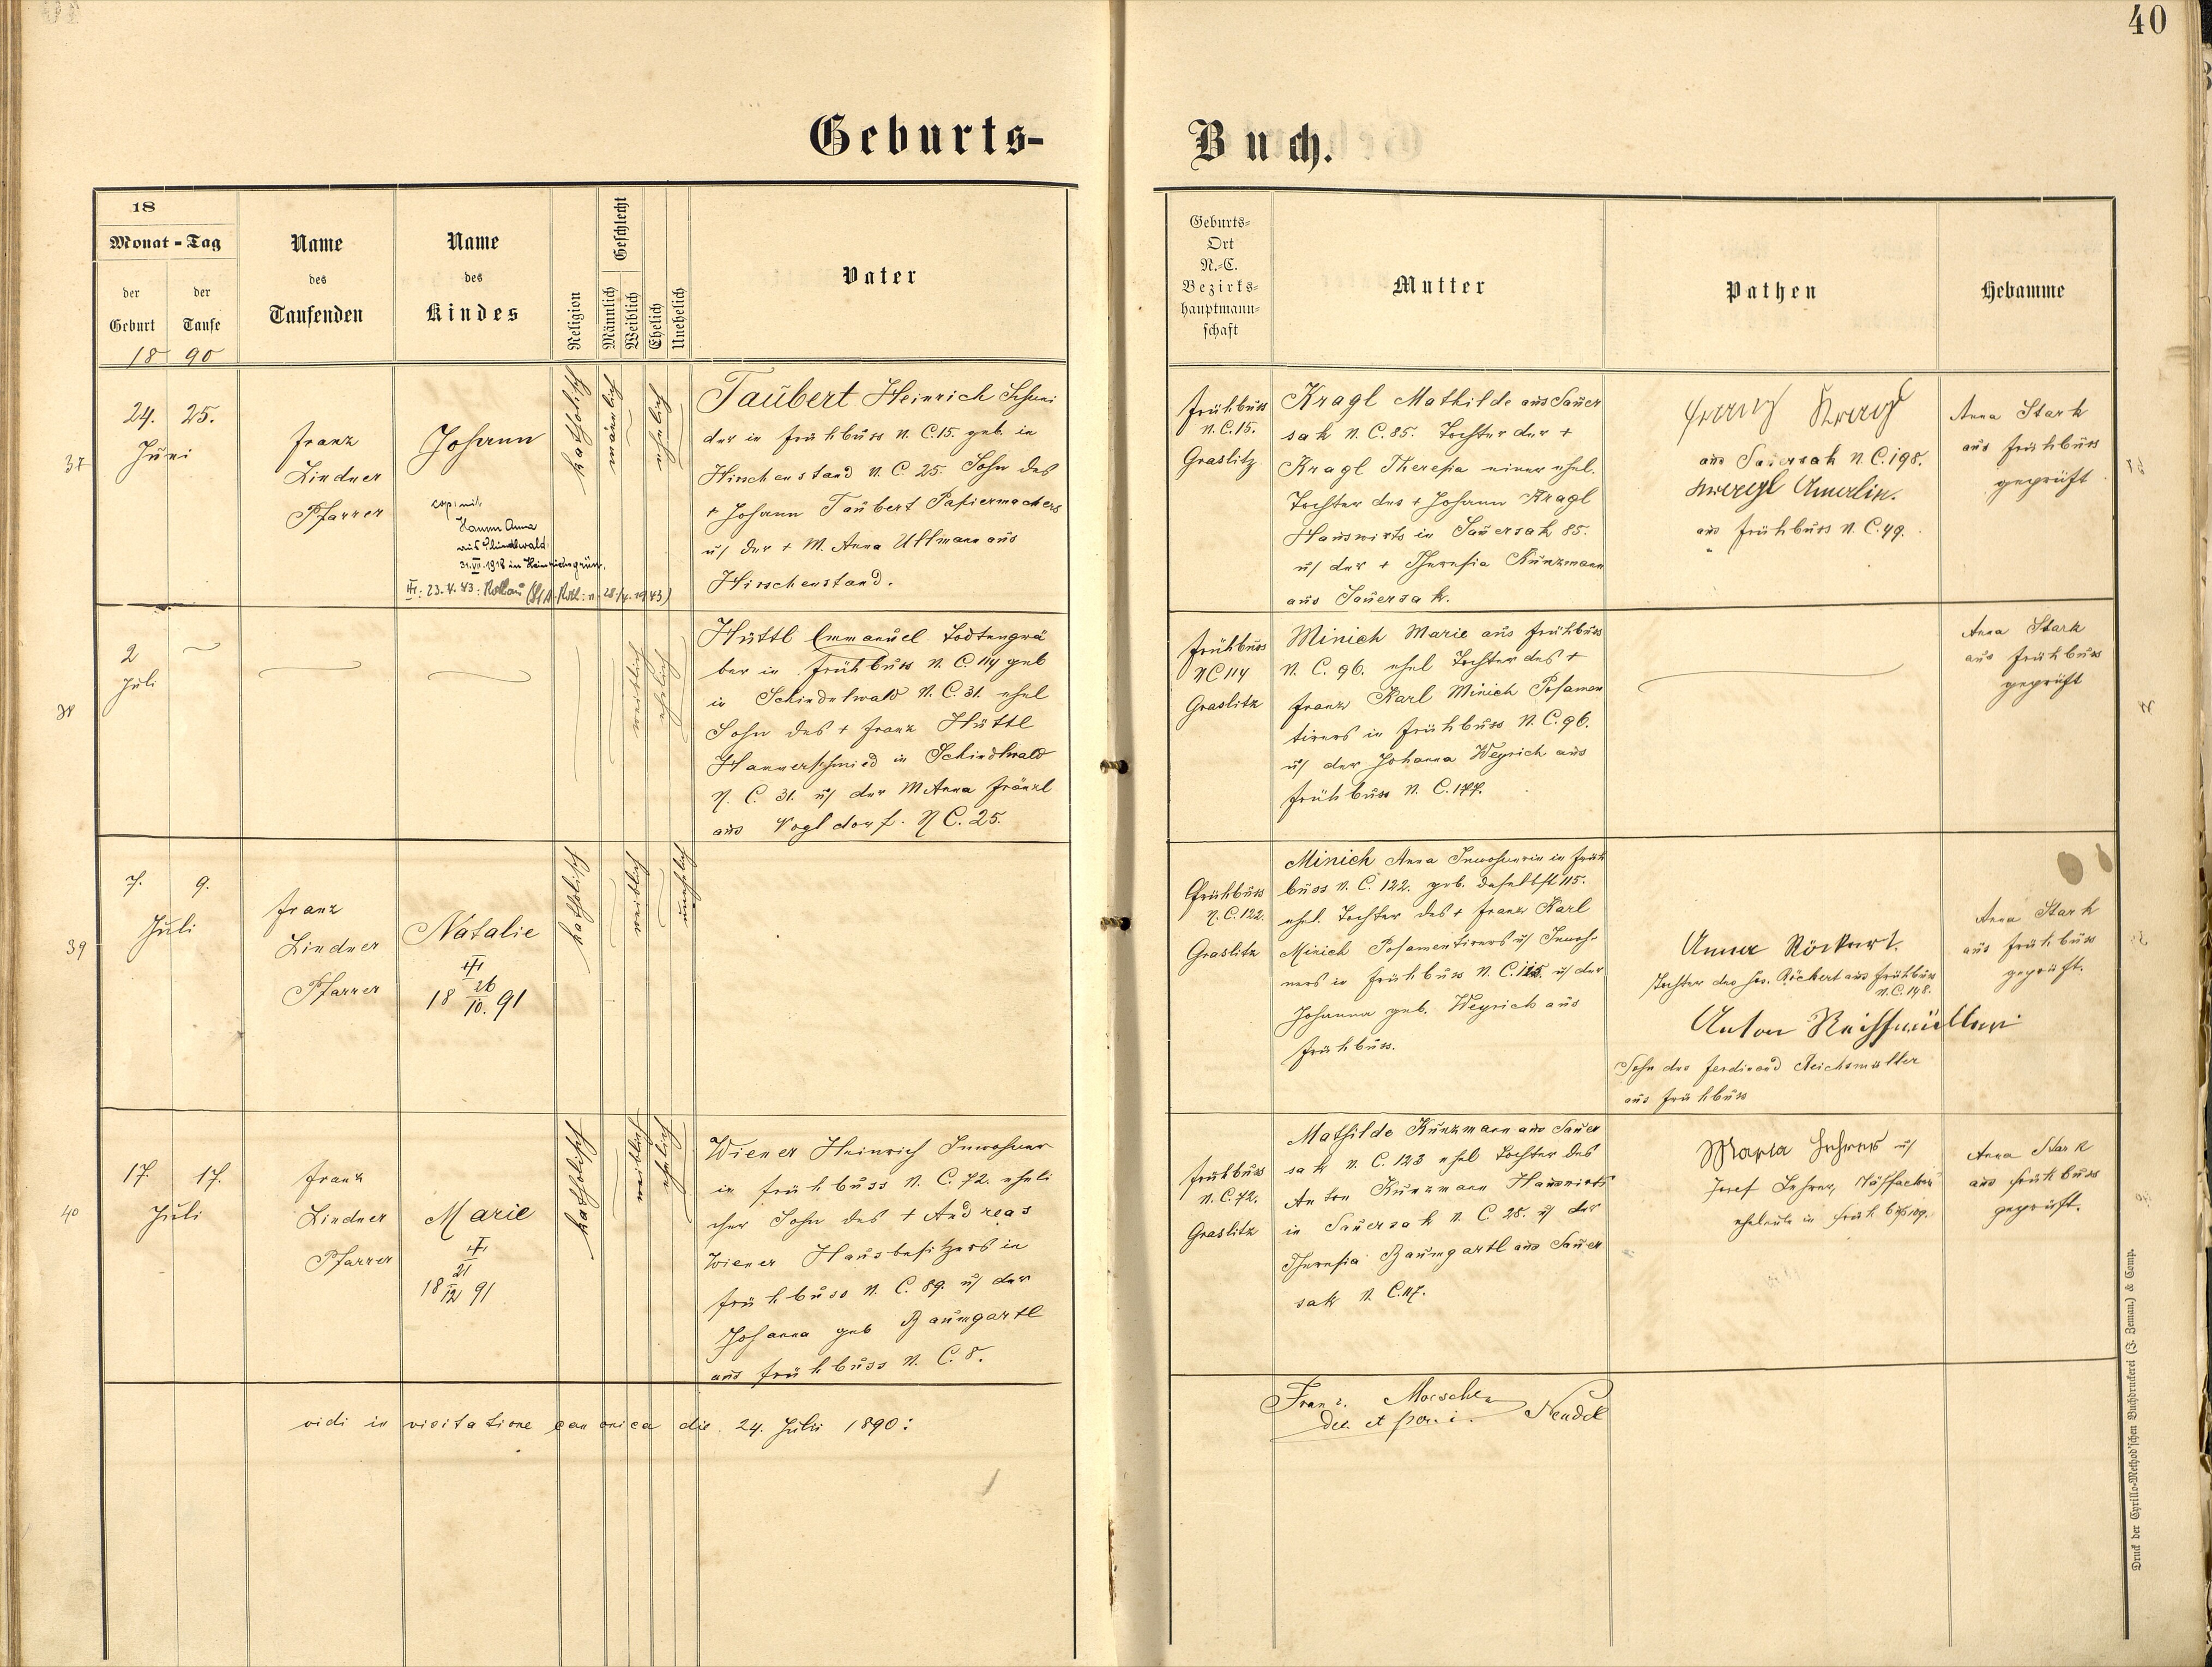 40
Geburts-
Buch.
18
Monat - Tag
der Geburt
der Taufe
18 90
Name des Taufenden
Name des Kindes
Religion
Geschlecht
Männlich
Weiblich
Ehelich
Unehelich
Vater
Geburts-
Ort
N.-C.
Bezirks-
hauptmann-
schaft
Mutter
Pathen
Hebamme
37
24. 25.
Juni
Franz
Lindner
Pfarrer
Johann
cop. mit
Hamm Anna
aus
31.VII.1918 in Heinrichsgrün.
23.4.43: Rothau
katholisch
männlich
ehelich
Taubert Heinrich Schnei
der in Frühbuss N.C.15. geb. in
Hirschenstand N.C. 25. Sohn des
+ Johann Taubert Papiermachers
u/ der + M. Anna Ullmann aus
Hirschenstand.
Frühbuss
N.C.15.
Graslitz
Kragl Mathilde aus Sauer
sak N.C.85. Tochter der +
Kragl Theresia einer ehel.
Tochter des + Johann Kragl
Hauswirts in Sauersak 85.
u/ der + Theresia Kunzmann
aus Sauersak.
Franz Kragl
aus Sauersak N.C.198.
Kragl Amalin.
aus Frühbuss N.C.49.
Anna Stark
aus Frühbuss
geprüft
38
2
Juli
weiblich
ehelich
Hüttl Emmanuel Todtengrä
ber in Frühbuss N.C.114 geb
in Schindelwald N.C.31. ehel
Sohn des + Franz Hüttl
Hammerschmied in Schindlwald
N.C. 31. u/ der M Anna Fränzl
aus Vogldorf. N C. 25.
Frühbuss
N C 114
Graslitz
Minich Marie aus Frühbuss
N. C. 96. ehel Tochter des +
Franz Karl Minich Posamen
tirers in Frühbuss N.C.96.
u/ der Johanna Weyrich aus
Frühbuss N. C.177.
Anna Stark
aus Frühbuss
geprüft
39
7. 9.
Juli
Franz
Lindner
Pfarrer
Natalie
18 26/10. 91
katholisch
weiblich
unehelich
Frühbuss
N.C.122.
Graslitz
Minich Anna Inwohnerin in Früh
buss N.C. 122. geb. daselbst 115.
ehel. Tochter des + Franz Karl
Minich Posamentirers u/ Inwoh-
ners in Frühbuss N.C.115. u/ der
Johanna geb. Weyrich aus
Frühbuss.
Anna Röckert.
Tochter des Jos. Röckert aus Frühbuss
N.C.148.
Anton Reichsmüller
Sohn des Ferdinand Reichsmüller
aus Frühbuss
Anna Stark
aus Frühbuss
geprüft.
40
17. 17.
Juli
Franz
Lindner
Pfarrer
Marie
18 21/12 91
katholisch
weiblich
ehelich
Wiener Heinrich Inwohner
in Frühbuss N. C. 72. eheli
cher Sohn des + Andreas
Wiener Hausbesitzers in
Frühbuss N. C. 89. u/ der
Johanna geb Baumgartl
aus Frühbuss N. C. 8.
Frühbuss
N.C.72.
Graslitz
Mathilde Kunzmann aus Sauer
sak N. C. 123 ehel Tochter des
Anton Kunzmann Hauswirts
in Sauersak N. C. 28. u/ der
Theresia Baumgartl aus Sauer
sak N. C.117.
Maria Lehrer u/
Josef Lehrer,
eheleute in
Anna Stark
aus Frühbuss
geprüft.
vidi in visitatione canonica die. 24. Juli 1890:
Franz Moesche
Dec. et par. i. Neudek
Druck der Cyrillo-Method'schen Buchdruckerei (J. Zeman) & Comp.